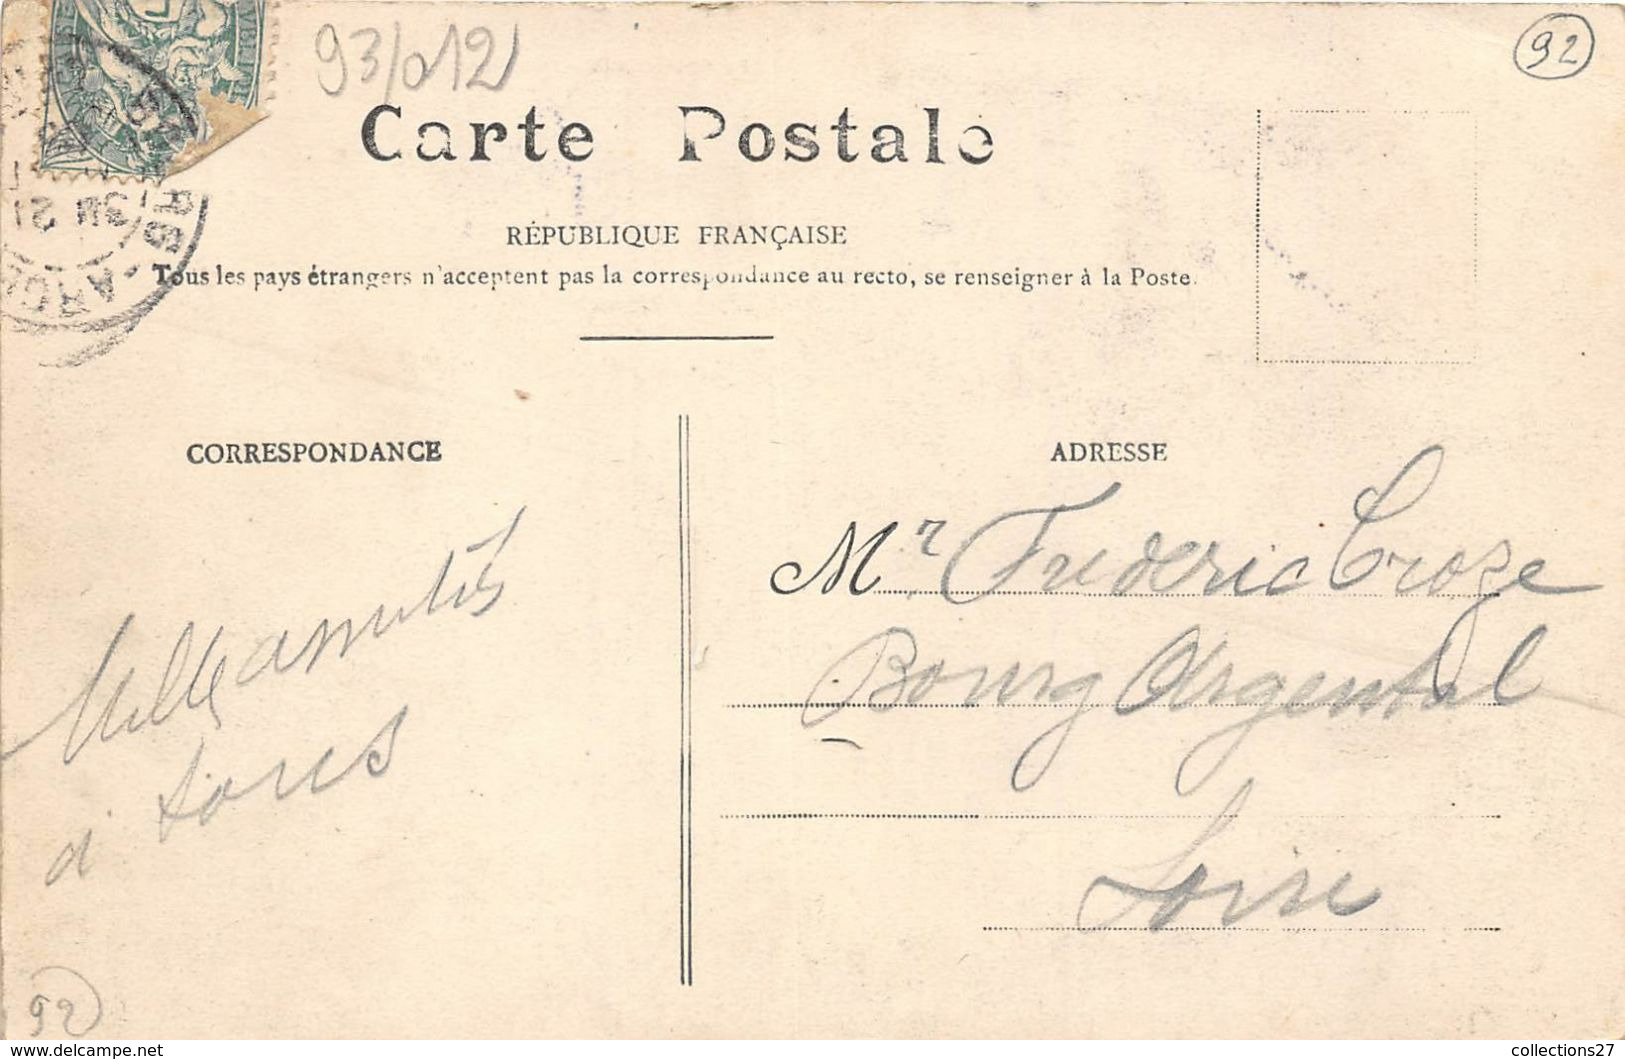 93/012
92
Carte Postale
RÉPUBLIQUE FRANÇAISE
Tous les pays étrangers n'acceptent pas la correspondance au recto, se renseigner à la Poste.
CORRESPONDANCE
Mille amitiés
à tous
ADRESSE
Mr Frederic Croze
Bourg Argental
Loire
92
collections27